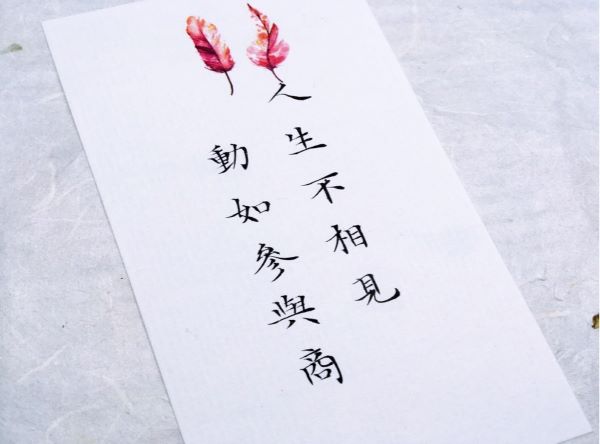 人生不相見
動如參與商